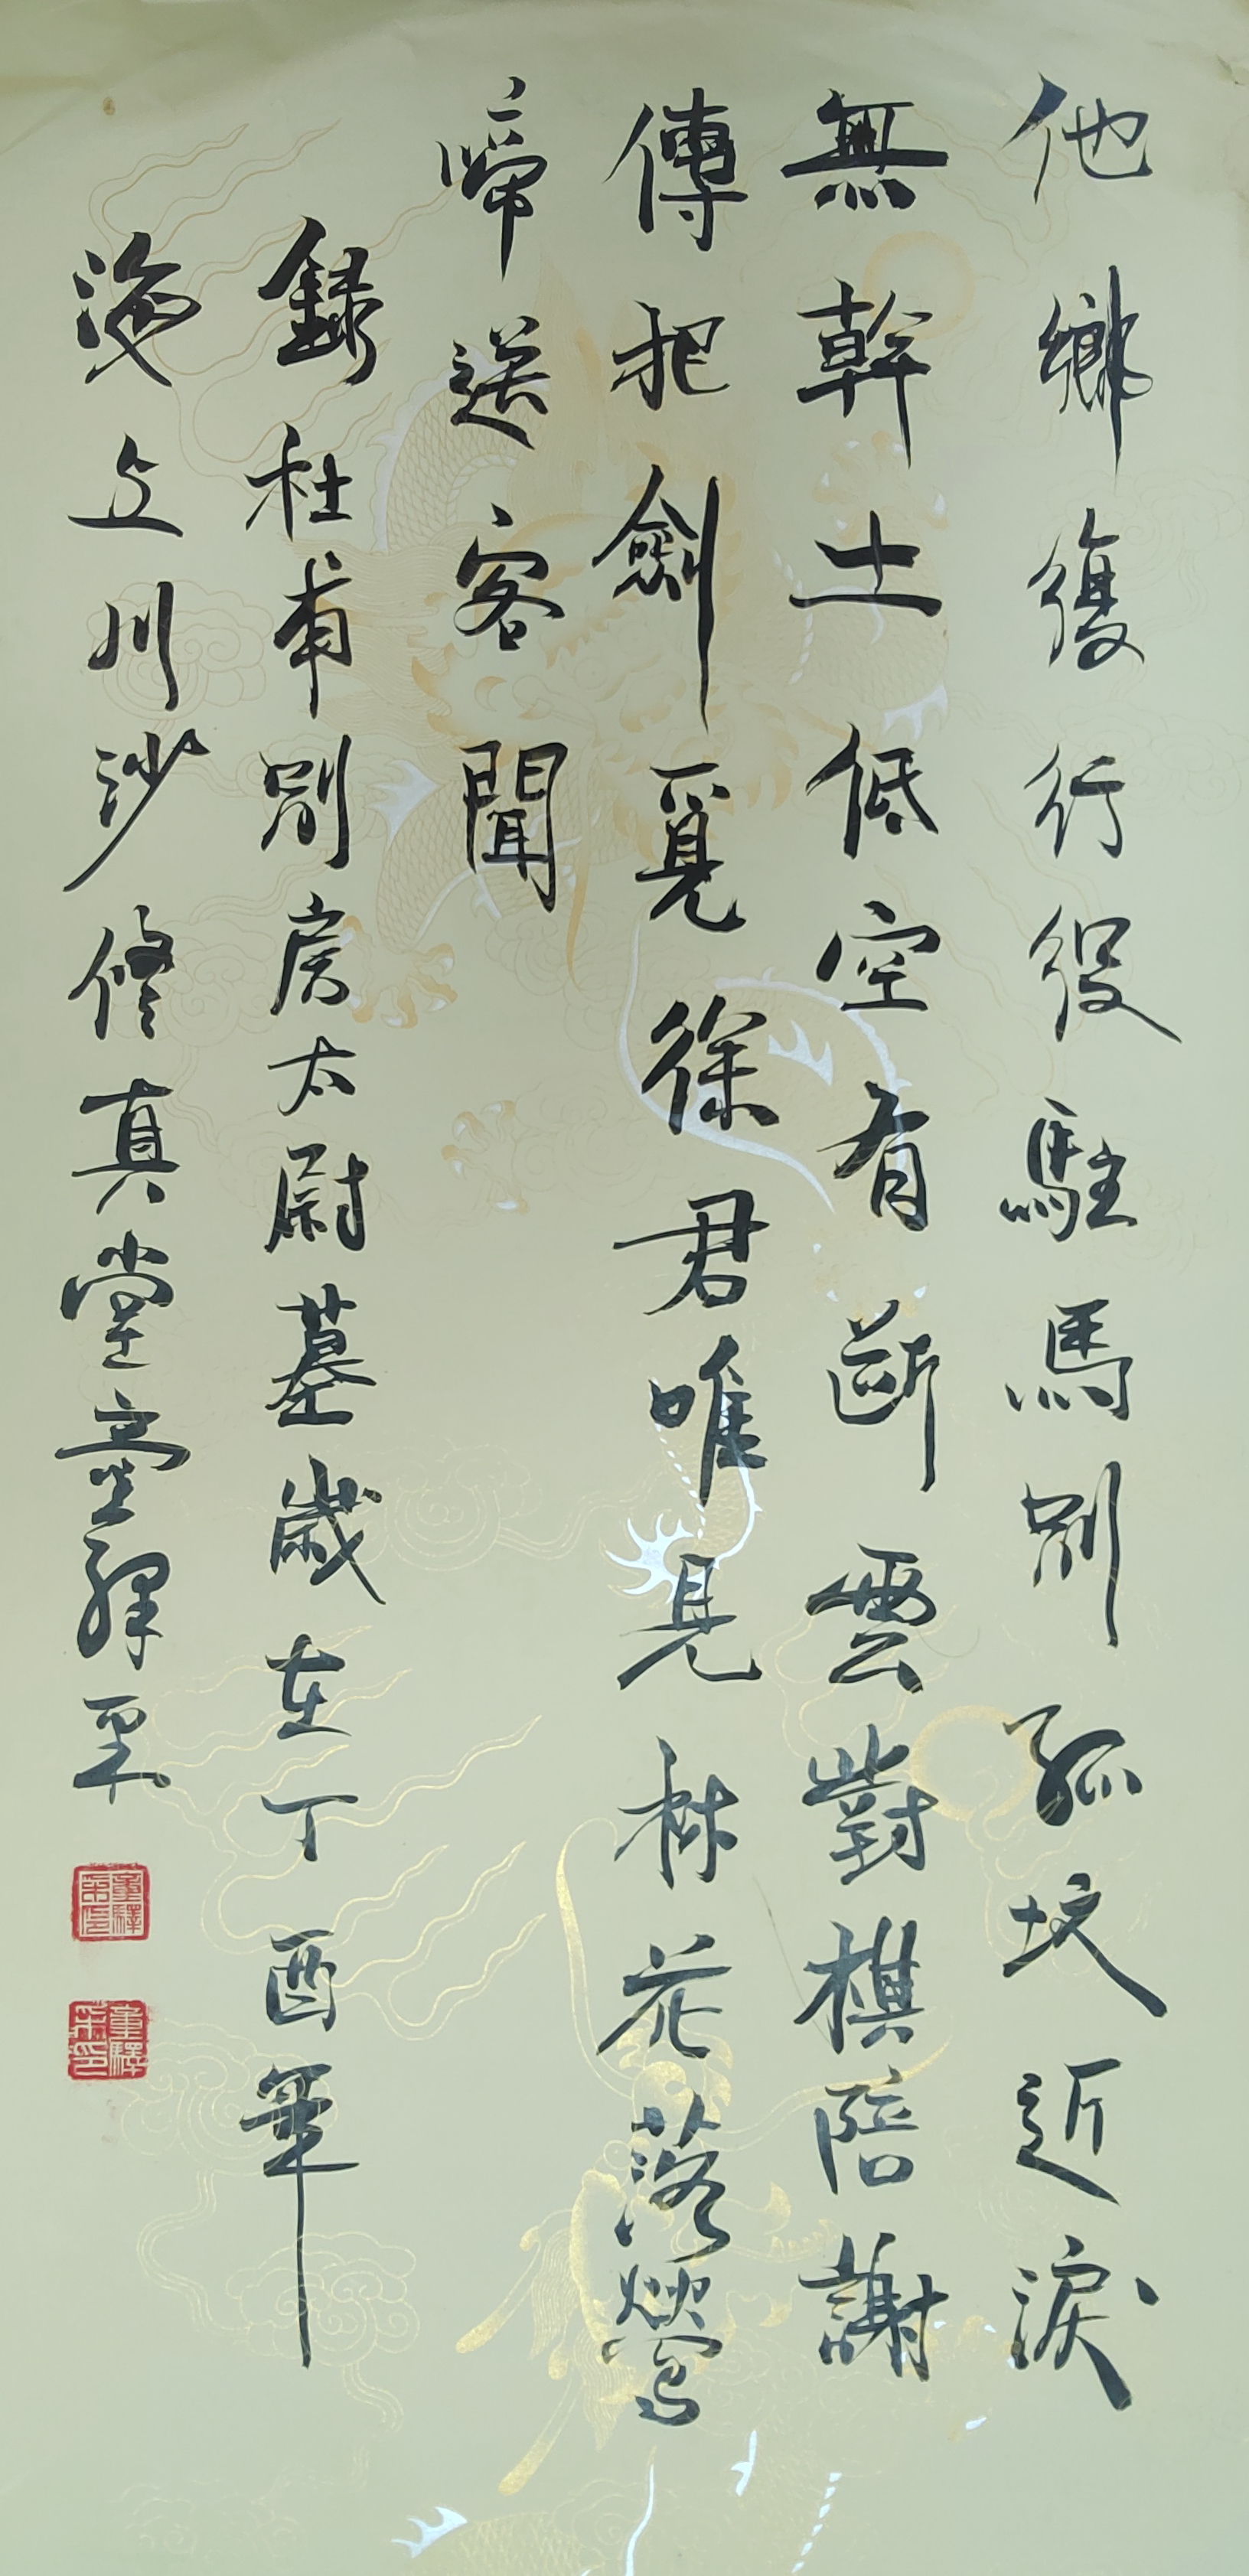 他鄉復行役駐馬別孤墳近淚
無幹土低空有斷雲對棋陪謝
傅把劍覓徐君唯見林花落鶯
啼送客聞
錄杜甫別房太尉墓歲在丁酉筆
海上川沙修真堂童驛